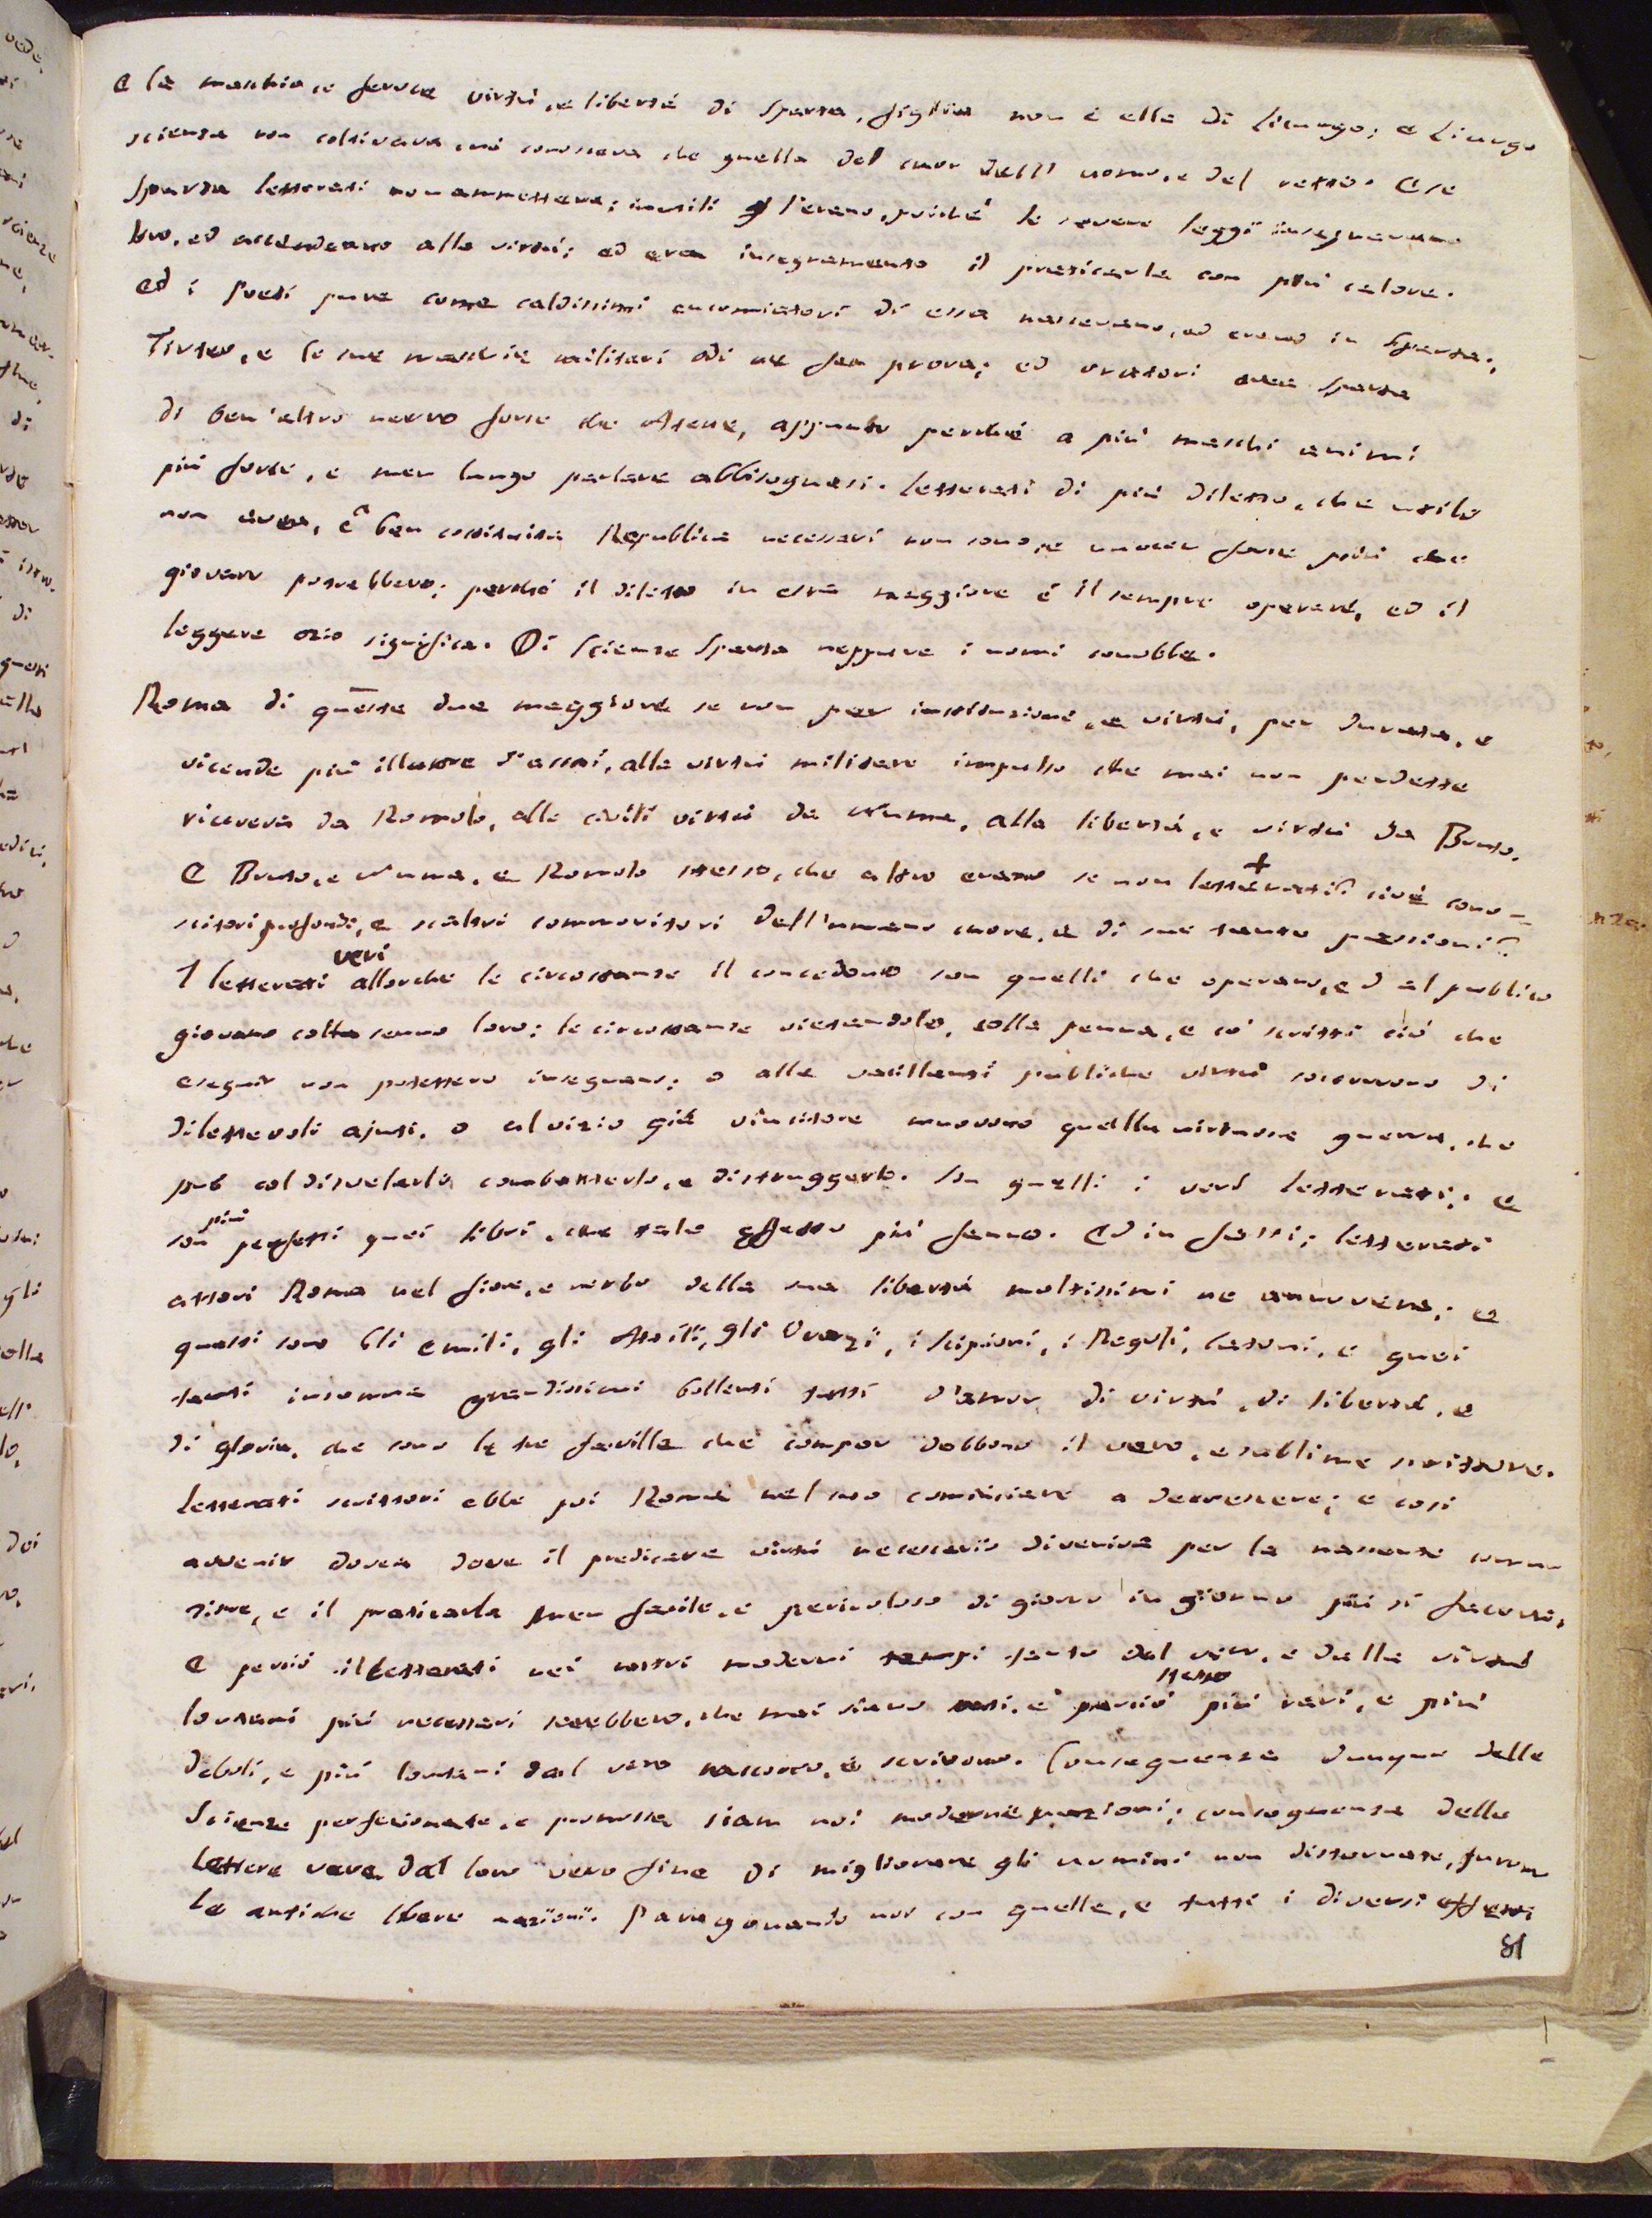 E la maschia, e feroce virtù, e libertà di Sparta, figlia non è ella di Licurgo; e Licurgo
scienza non coltivava, nè conosceva che quella del cuor dell' uomo, e del retto. E se
Sparta letterati non ammetteva; inutili l'erano, poichè le severe leggi insegnavano
loro, ed accendeano alla virtù; ed era insegnamento il praticarla con più calore.
Ed i Poeti pure come caldissimi encomiatori di essa nascevano, ed erano in Sparta;
Tirteo, e le sue maschie militari odi ne fan prova; ed oratori avea Sparta
di ben'altro nervo forse che Atene, appunto perchè a più maschi animi
più forte, e men lungo parlare abbisognasi. Letterati di più diletto, che utile
non avea, e a ben costituita Republica necessari non sono, e nuocer forse più che
giovare potrebbero; perchè il diletto in essa maggiore è il sempre operare, ed il
leggere ozio significa. Di Scienze Sparta neppure i nomi conobbe.
Roma di queste due maggiore se non per instituzione, e virtù, per durata, e
vicende più illustre d'assai, alla virtù militare impulso che mai non perdesse
riceveva da Romolo, alle civili virtù da Numa, alla libertà, e virtù da Bruto.
E Bruto, e Numa, e Romolo stesso, che altro erano se non letterati? + cioè cono-
scitori profondi, e scaltri commovitori dell'umano cuore, e di sue tante passioni?
I letterati veri allorchè le circostanze il concedono son quelli che operano, ed al publico
giovano colla senno loro; le circostanze vietandolo, colla penna, e co' scritti ciò che
eseguir non potettero insegnano; o alle vacillanti publiche virtù soccorrono di
dilettevoli ajuti, o al vizio già vincitore muovono quella virtuosa guerra, che
può col disvelarlo combatterlo, e distruggerlo. Son quelli i veri letterati; e
son più perfetti quei libri, che tale effetto più fanno. Ed in fatti; letterati
attori Roma nel fiore, e nerbo della sua libertà moltissimi ne annovera; e
questi sono Gli Emili, gli Attilî, gli Orazî, i Scipioni, i Regoli, Catoni, e quei
tanti insomma grandissimi bollenti tutti d'amor di virtù, di libertà, e
di gloria, che sono le tre faville che compor debbono il vero, e sublime scrittore.
Letterati scrittori ebbe poi Roma nel suo cominciare a decrescere; e così
avvenir dovea dove il predicare virtù necessario diveniva per la nascente corru
zione, e il praticarla men facile, e pericoloso di giorno in giorno più si facea.
E perciò i letterati nei nostri moderni tempi tanto dal vero, e dalla virtù
lontani più necessari sarebbero, che mai siano stati, e perciò stesso più rari, e più
deboli, e più lontani dal vero nascono, e scrivono. Conseguenza dunque delle
Scienze perfezionate, e promosse siam noi moderne nazioni; conseguenza delle
Lettere vere dal loro vero fine di migliorare gli uomini non distornate, furon
le antiche libere nazioni. Paragonando noi con quelle, e tutti i diversi effetti
81